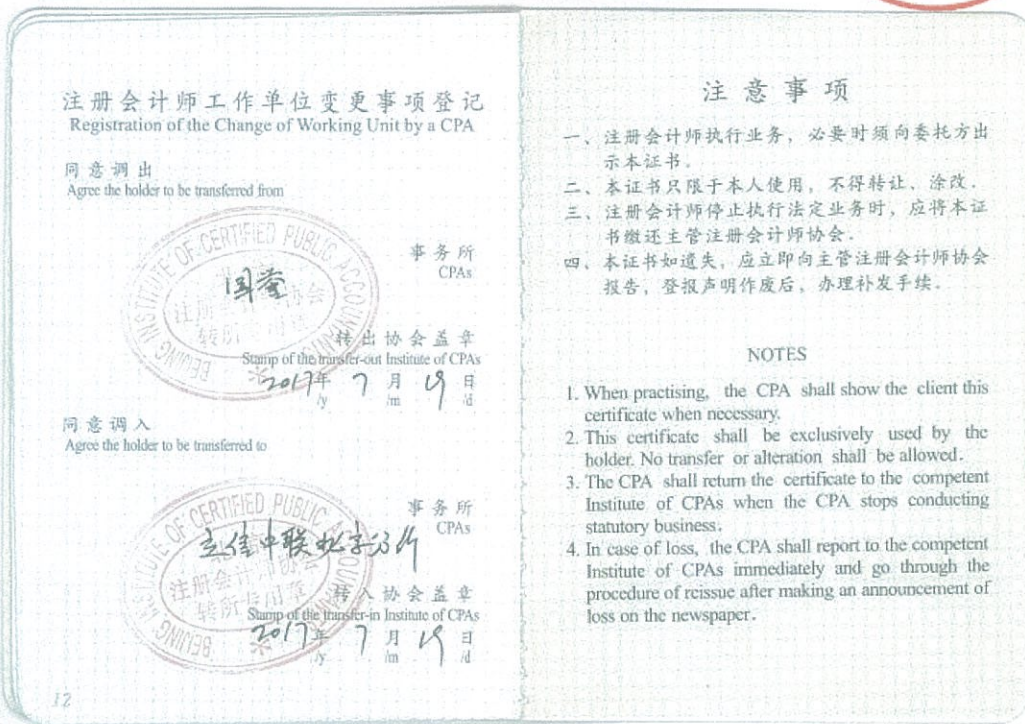 注册会计师工作单位变更事项登记
Registration of the Change of Working Unit by a CPA
同意调出
Agree the holder to be transferred from
BEIJING INSTITUTE OF CERTIFIED PUBLIC ACCOUNTANTS
注册会计师协会
转所专用章
事务所
CPAs
转出协会盖章
Stamp of the transfer-out Institute of CPAs
2017年 7月 19日
/y /m /d
同意调入
Agree the holder to be transferred to
BEIJING INSTITUTE OF CERTIFIED PUBLIC ACCOUNTANTS
注册会计师协会
转所专用章
事务所
CPAs
转入协会盖章
Stamp of the transfer-in Institute of CPAs
2017年 7月 19日
/y /m /d
12
注意事项
一、注册会计师执行业务，必要时须向委托方出
示本证书。
二、本证书只限于本人使用，不得转让、涂改.
三、注册会计师停止执行法定业务时，应将本证
书缴还主管注册会计师协会.
四、本证书如遗失，应立即向主管注册会计师协会
报告，登报声明作废后，办理补发手续.
NOTES
1. When practising, the CPA shall show the client this
certificate when necessary.
2. This certificate shall be exclusively used by the
holder. No transfer or alteration shall be allowed.
3. The CPA shall return the certificate to the competent
Institute of CPAs when the CPA stops conducting
statutory business.
4. In case of loss, the CPA shall report to the competent
Institute of CPAs immediately and go through the
procedure of reissue after making an announcement of
loss on the newspaper.